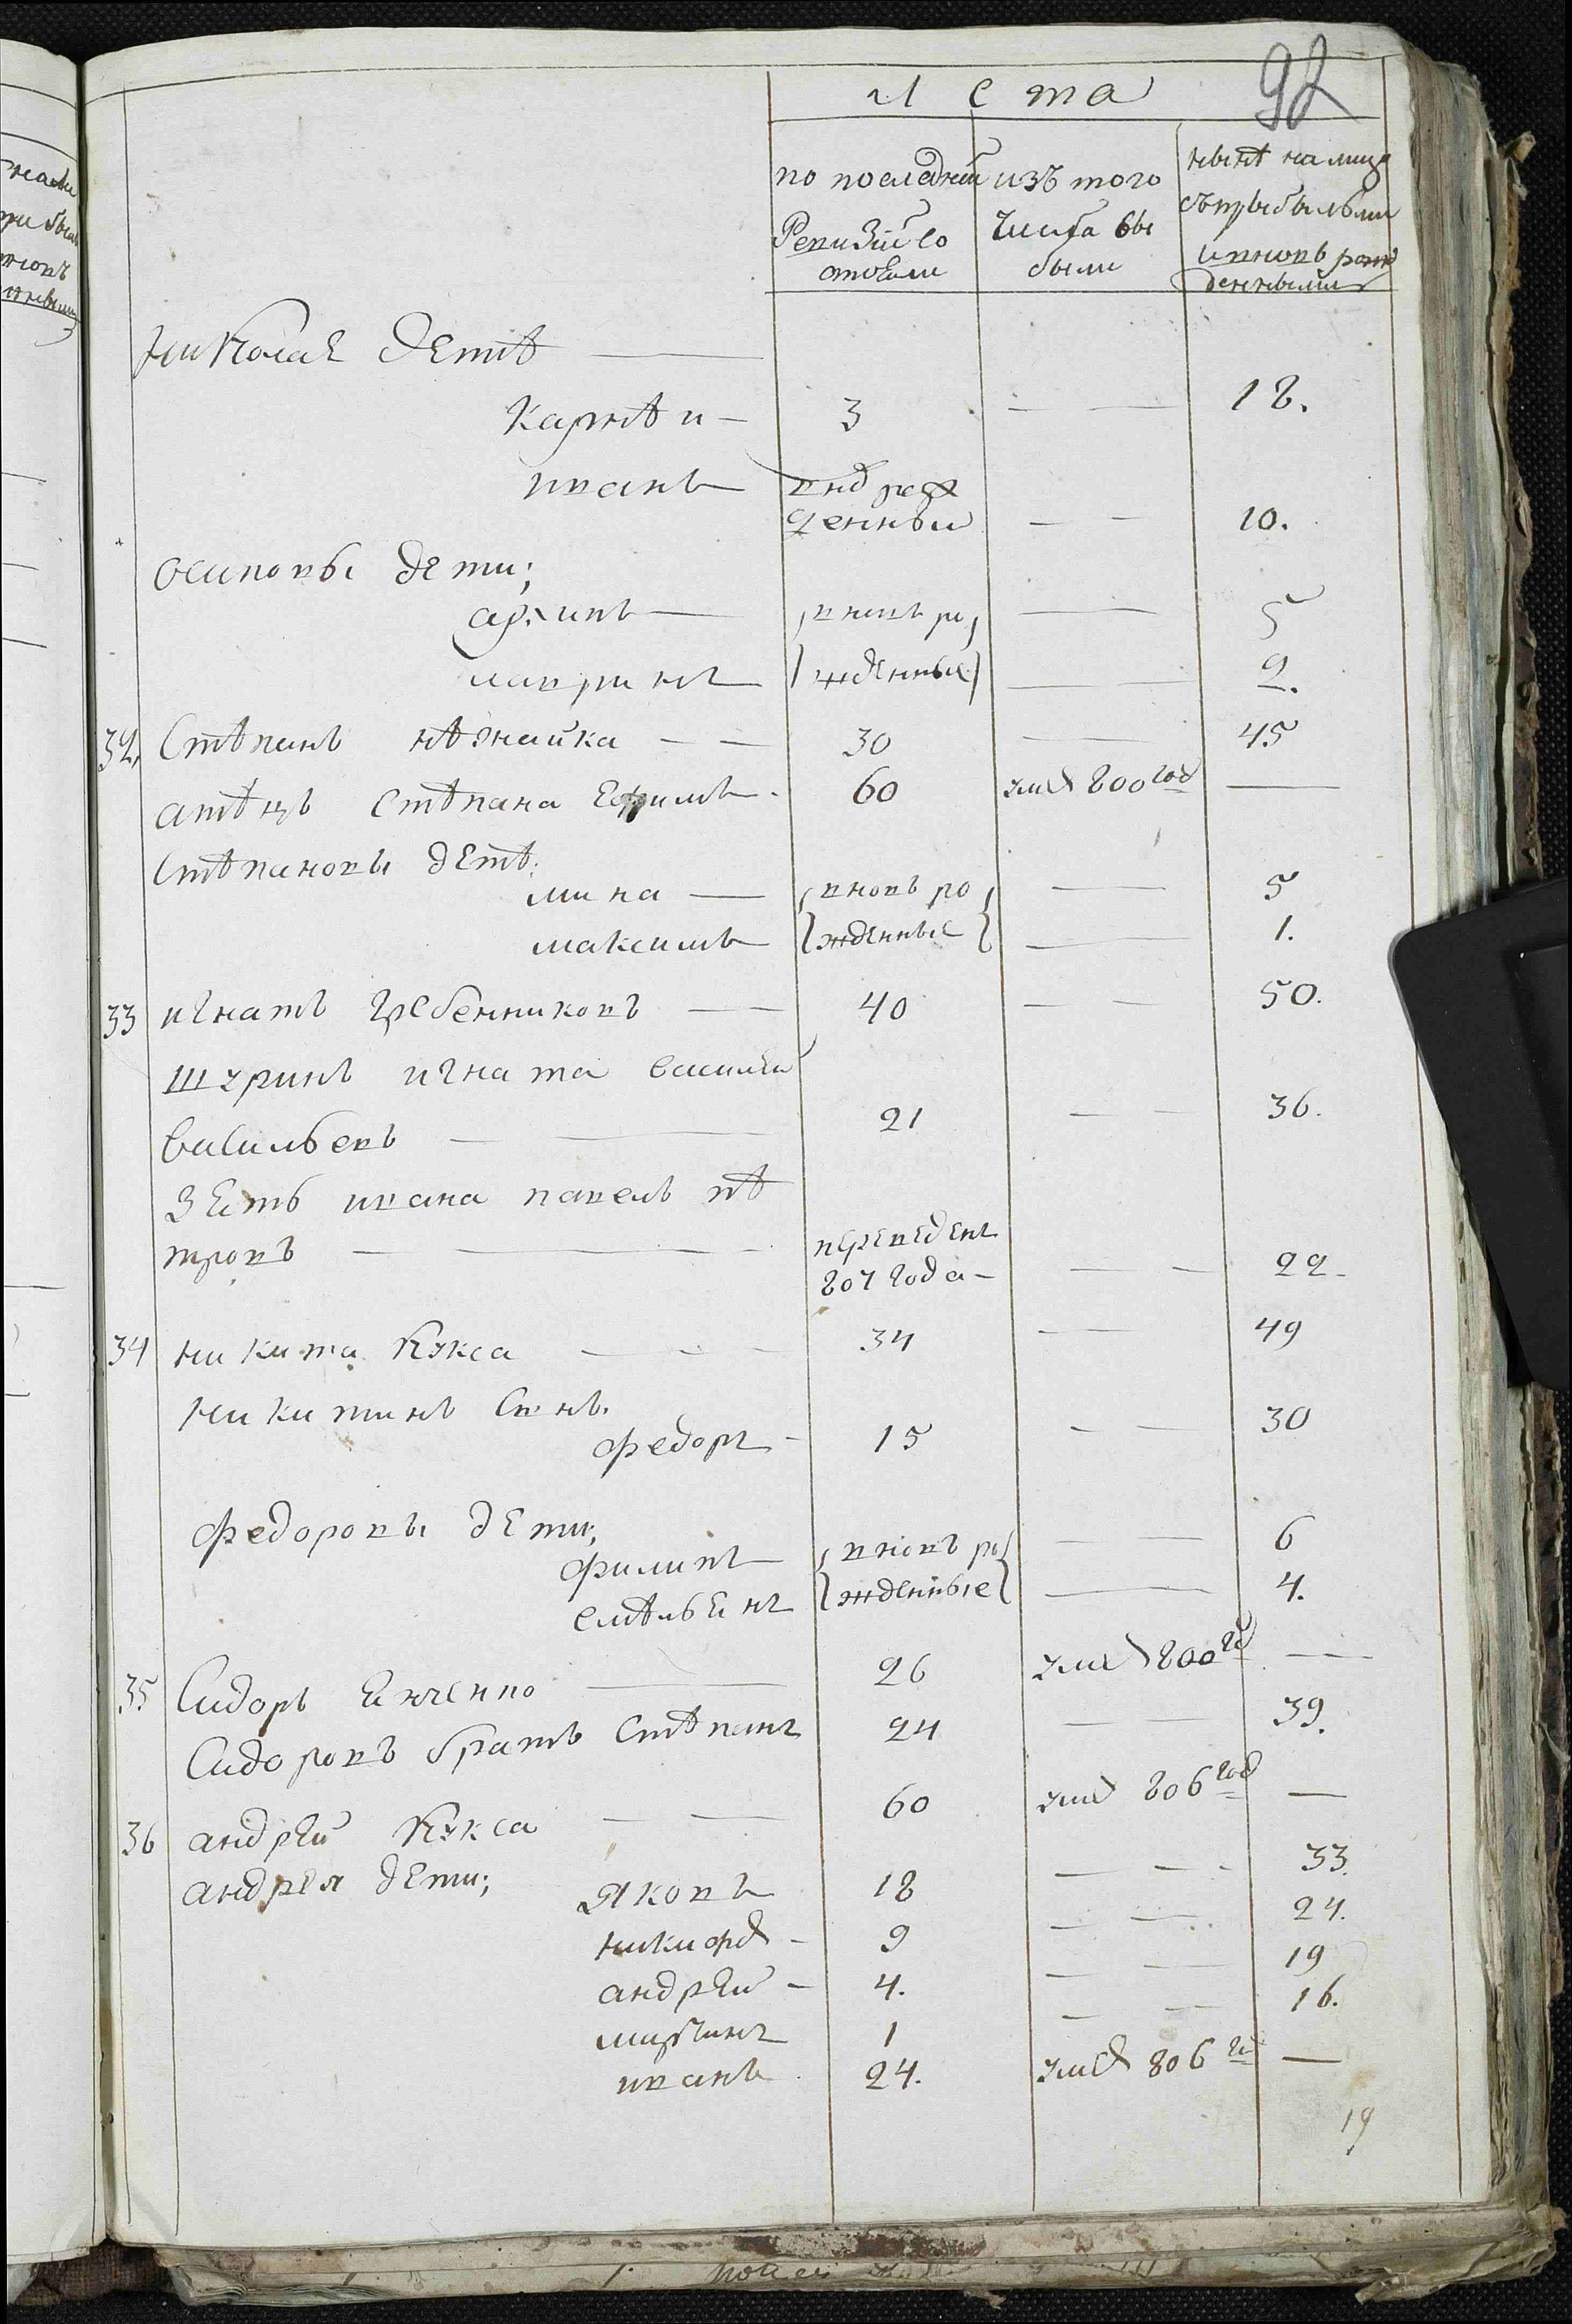 Лета
92
по последней Ревизіи состояли
изъ того числа выбыли
ныне на лицо съ прибылыми и вновь рожденными
Николае детѣ
Карнѣи 3 18.
иванъ вно рожденныи 10.
осиповы дети;
архипъ вновь ро 5
лавринъ жденные 2.
32 Стѣпанъ нѣзнайка 30 45
атѣцъ Стѣпана Ефимъ 60 уме 800 год
Стѣпановы детѣ:
мина вновь ро 5
максимъ жденные 1.
33 игнатъ гребенниковъ 40 50.
шуринъ игната василеи
васильевъ 21 36.
Зеть ивана павелъ пѣ
тровъ переведенъ 804 года 22
34 никита Кукса 34 49
никитинъ Сынъ
федоръ 15 30
федоровы дети;
филипъ вновь ро 6
емѣльеанъ жденные 4.
35 Сидоръ 26 уме 800 го
Сидоровъ братъ Стѣпанъ 24 39.
36 андрей Кукса 60 уме 806 год
андрея дети;
Яковъ 18 33.
никифо 9 24.
андрей 4. 19
мартинъ 1 16.
иванъ 24. уме 806 го
19